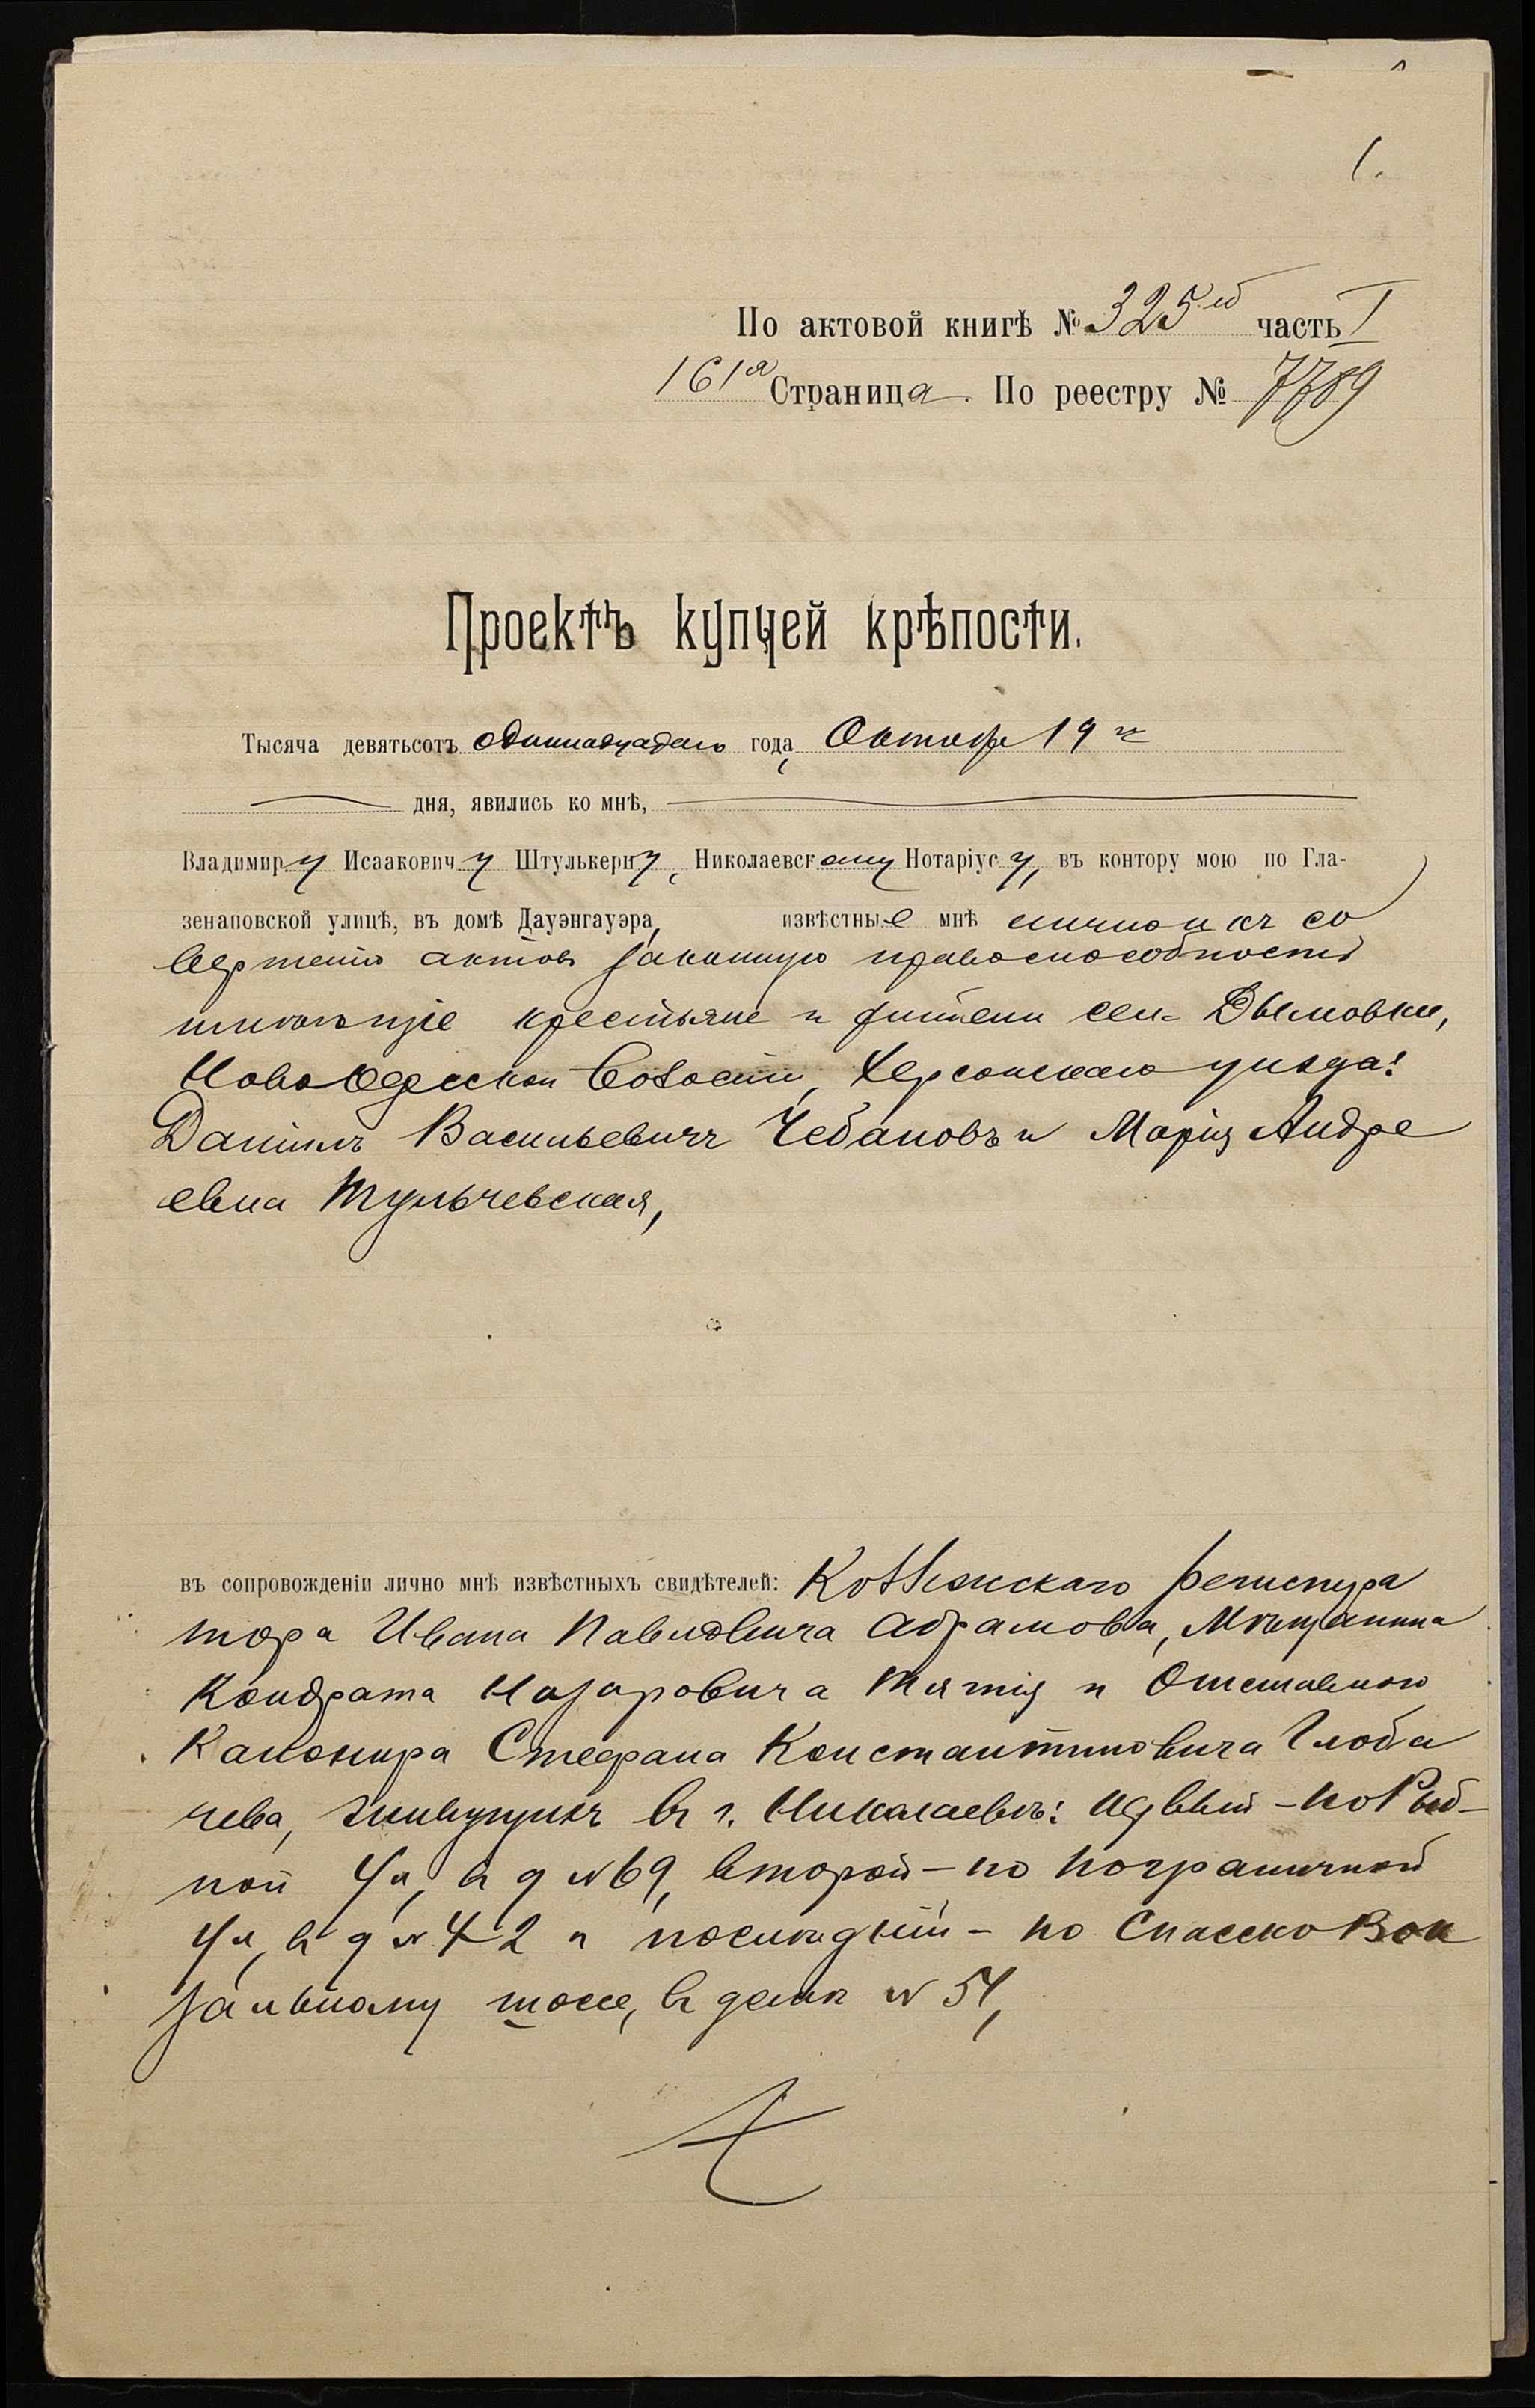 1.
По актовой книгѣ № 325й часть I
161я Страница. По реестру № 7789
Проектъ купчей крѣпости.
Тысяча девятьсотъ одиннадцатаго года, Октября 19го
дня, явились ко мнѣ,
Владимиру Исааковичу Штулькерну, Николаевскому Нотаріусу, въ контору мою по Гла-
зенаповской улицѣ, въ домѣ Дауэнгауэра, извѣстные мнѣ лично и къ со
вершенію актовъ законную правоспособность
имѣющіе крестьяне и жители сел. Дымовки,
Ново Одесской волости, Херсонскаго уѣзда:
Даніилъ Васильевичъ Чебановъ и Марія Андре
евна Тульчевская,
въ сопровожденіи лично мнѣ извѣстныхъ свидѣтелей: Коллежскаго регистра
тора Ивана Павловича Абрамова, Мѣщанина
Кондрата Назаровича и Отставного
Канонира Стефана Константиновича Глоба
чева, живущихъ въ г. Николаевѣ: первый - по Рыб-
ной ул, в д № 69, второй - по Пограничной
ул, в д № 42 и послѣдній - по Спасско Вок
зальному шоссе, в домѣ № 54,